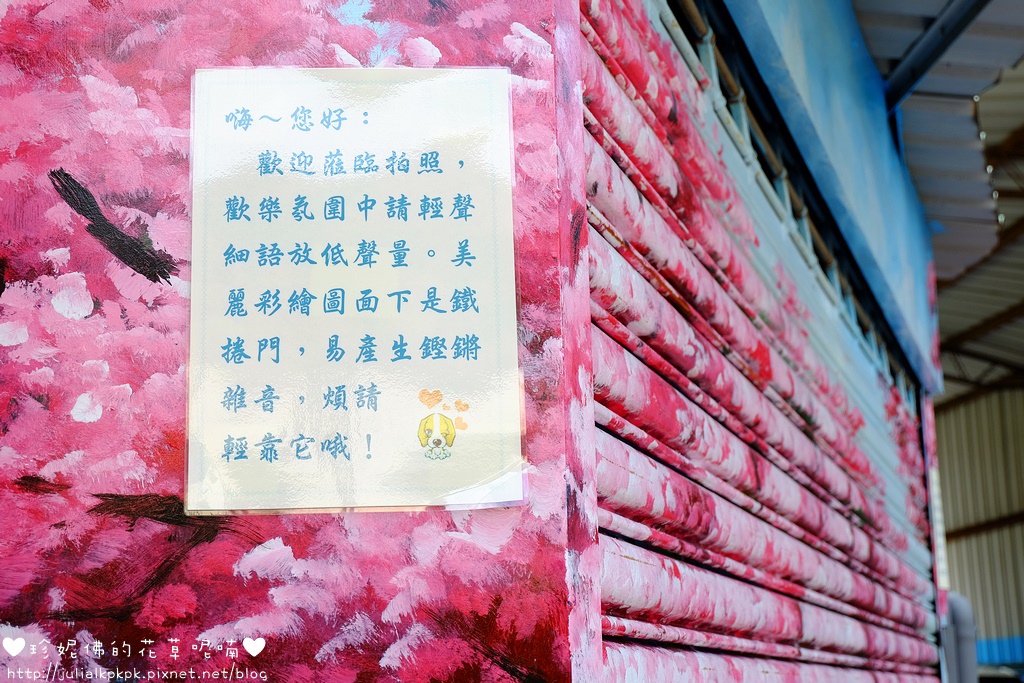 嗨～您好：
歡迎蒞臨拍照，
歡樂氛圍中請輕聲
細語放低聲量。美
麗彩繪圖面下是鐵
捲門，易產生鏗鏘
雜音，煩請
輕靠它哦！
♥珍妮佛的花草呢喃♥
http://julialkpkpk.pixnet.net/blog